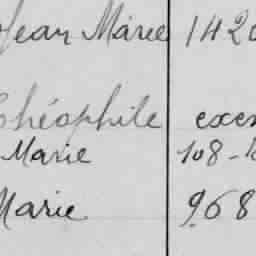 Jean Marie 1420
Théophile exem
Marie 108-1
Marie 968